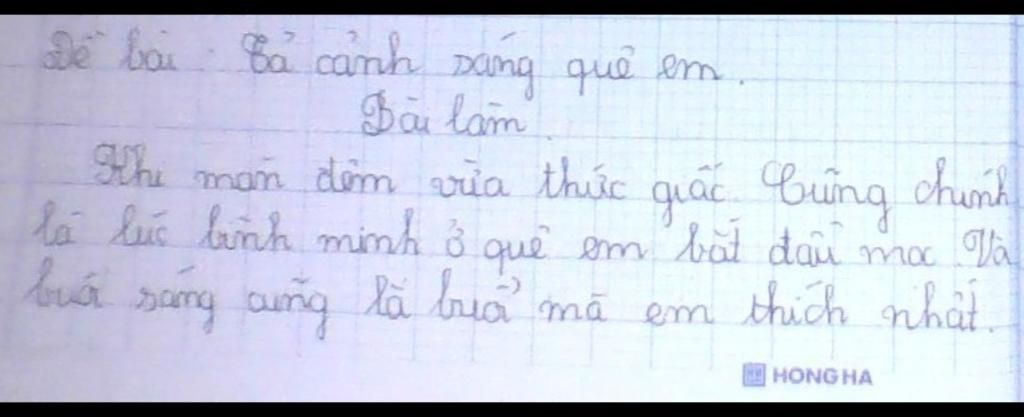 Đề bài : Tả cảnh sáng quê em.
Bài làm.
Khi màn đêm vừa thức giấc. Cũng chính
là lúc bình minh ở quê em bắt đầu mọc. Và
buổi sáng cũng là buổi mà em thích nhất.
HONG HA